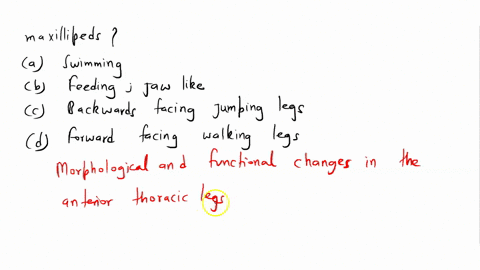 maxillipeds ?
(a) Swimming
(b) Feeding ; jaw like
(c) Backwards facing jumping legs
(d) Forward facing walking legs
Morphological and functional changes in the
anterior thoracic legs